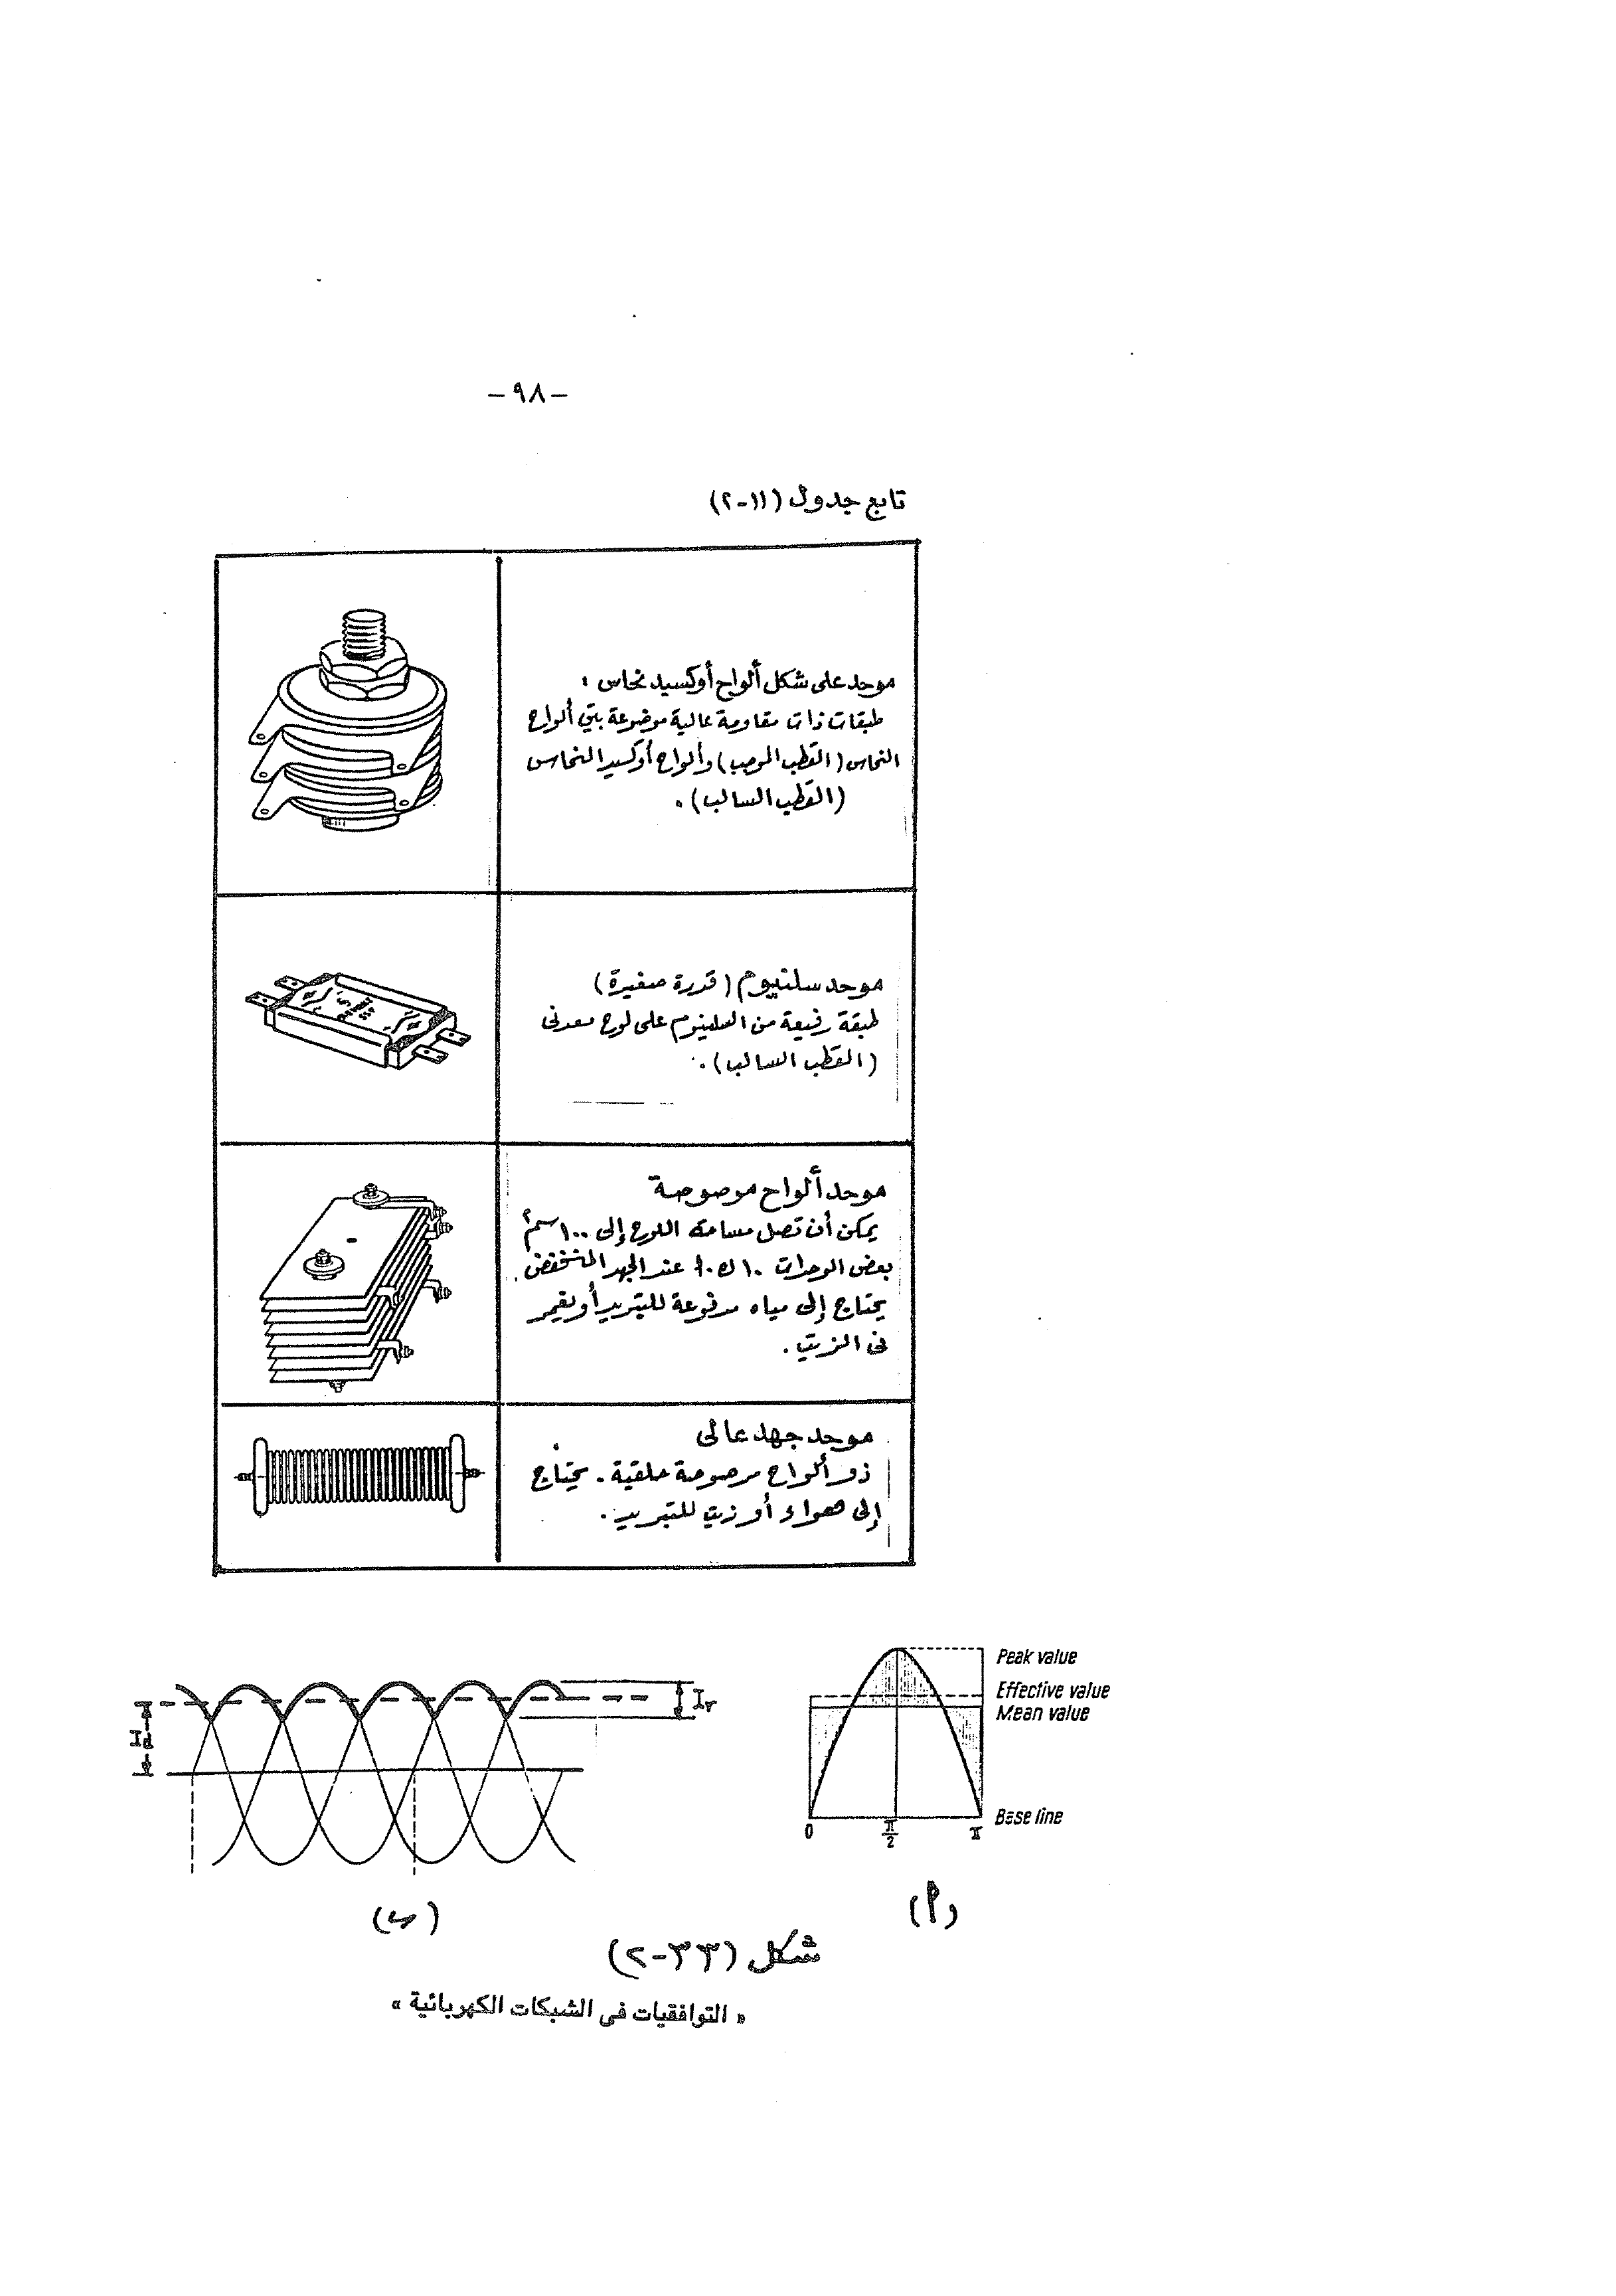 -٩٨-
تابع جدول (١١-٢)
موحد على شكل ألواح أوكسيد نحاس :
طبقات ذات مقاومة عالية موضوعة بين ألواح
النحاس (القطب الموجب) وألواح أوكسيد النحاس
(القطب السالب).
موحد سلنيوم (قدرة صغيرة)
طبقة رفيعة من السلينوم على لوح معدنى
(القطب السالب).
موحد ألواح مرصوصة
يمكن أن تصل مساحة اللوح إلى ١٠٠سم٢
بعض الوحدات عند الجهد المنخفض.
يحتاج إلى مياه مدفوعة للتبريد أو يغمر
فى الزيت.
موحد جهد عالى
ذو ألواح مرصوصة حلقية. يحتاج
إلى هواء أو زيت للتبريد.
Ir
Id
(ب)
Peak value
Effective value
Mean value
Base line
0
π/2
π
(أ)
شكل (٣٣-٢)
« التوافقيات فى الشبكات الكهربائية »